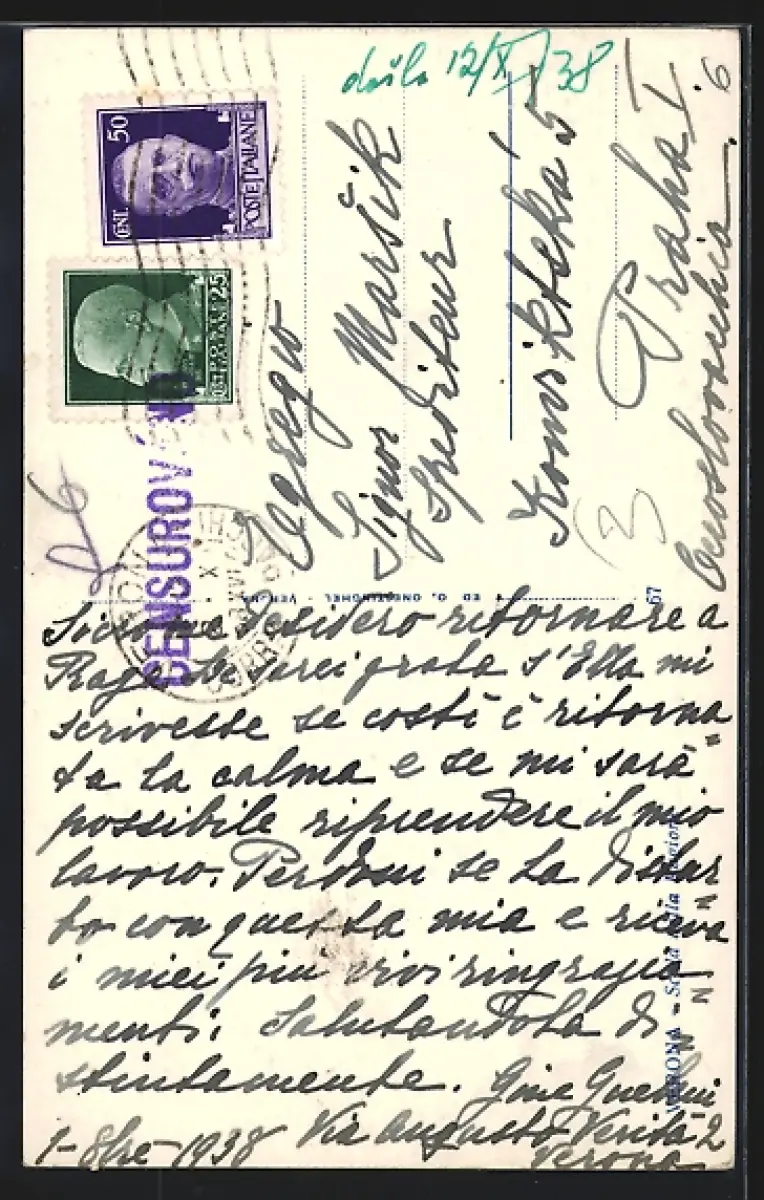 došlo 12/X 38
CENT. 50
POSTE ITALIANE
25
CENSUROVÁNO
Egregio
Signor Maršik
Spediteur
5
Praha I.
6
Cecoslovacchia
3
VERONA
67
Siccome desidero ritornare a
Praga Le sarei grata s'Ella mi
scrivesse se costì è ritorna
ta la calma e se mi sarà
possibile riprendere il mio
lavoro. Perdoni se La distur
bo con questa mia e riceva
i miei più vivi ringrazia
menti. Salutandola di
stintamente. Gina
1-8bre-1938 Via Augusto Verità 2
Verona
VERONA - Scala della